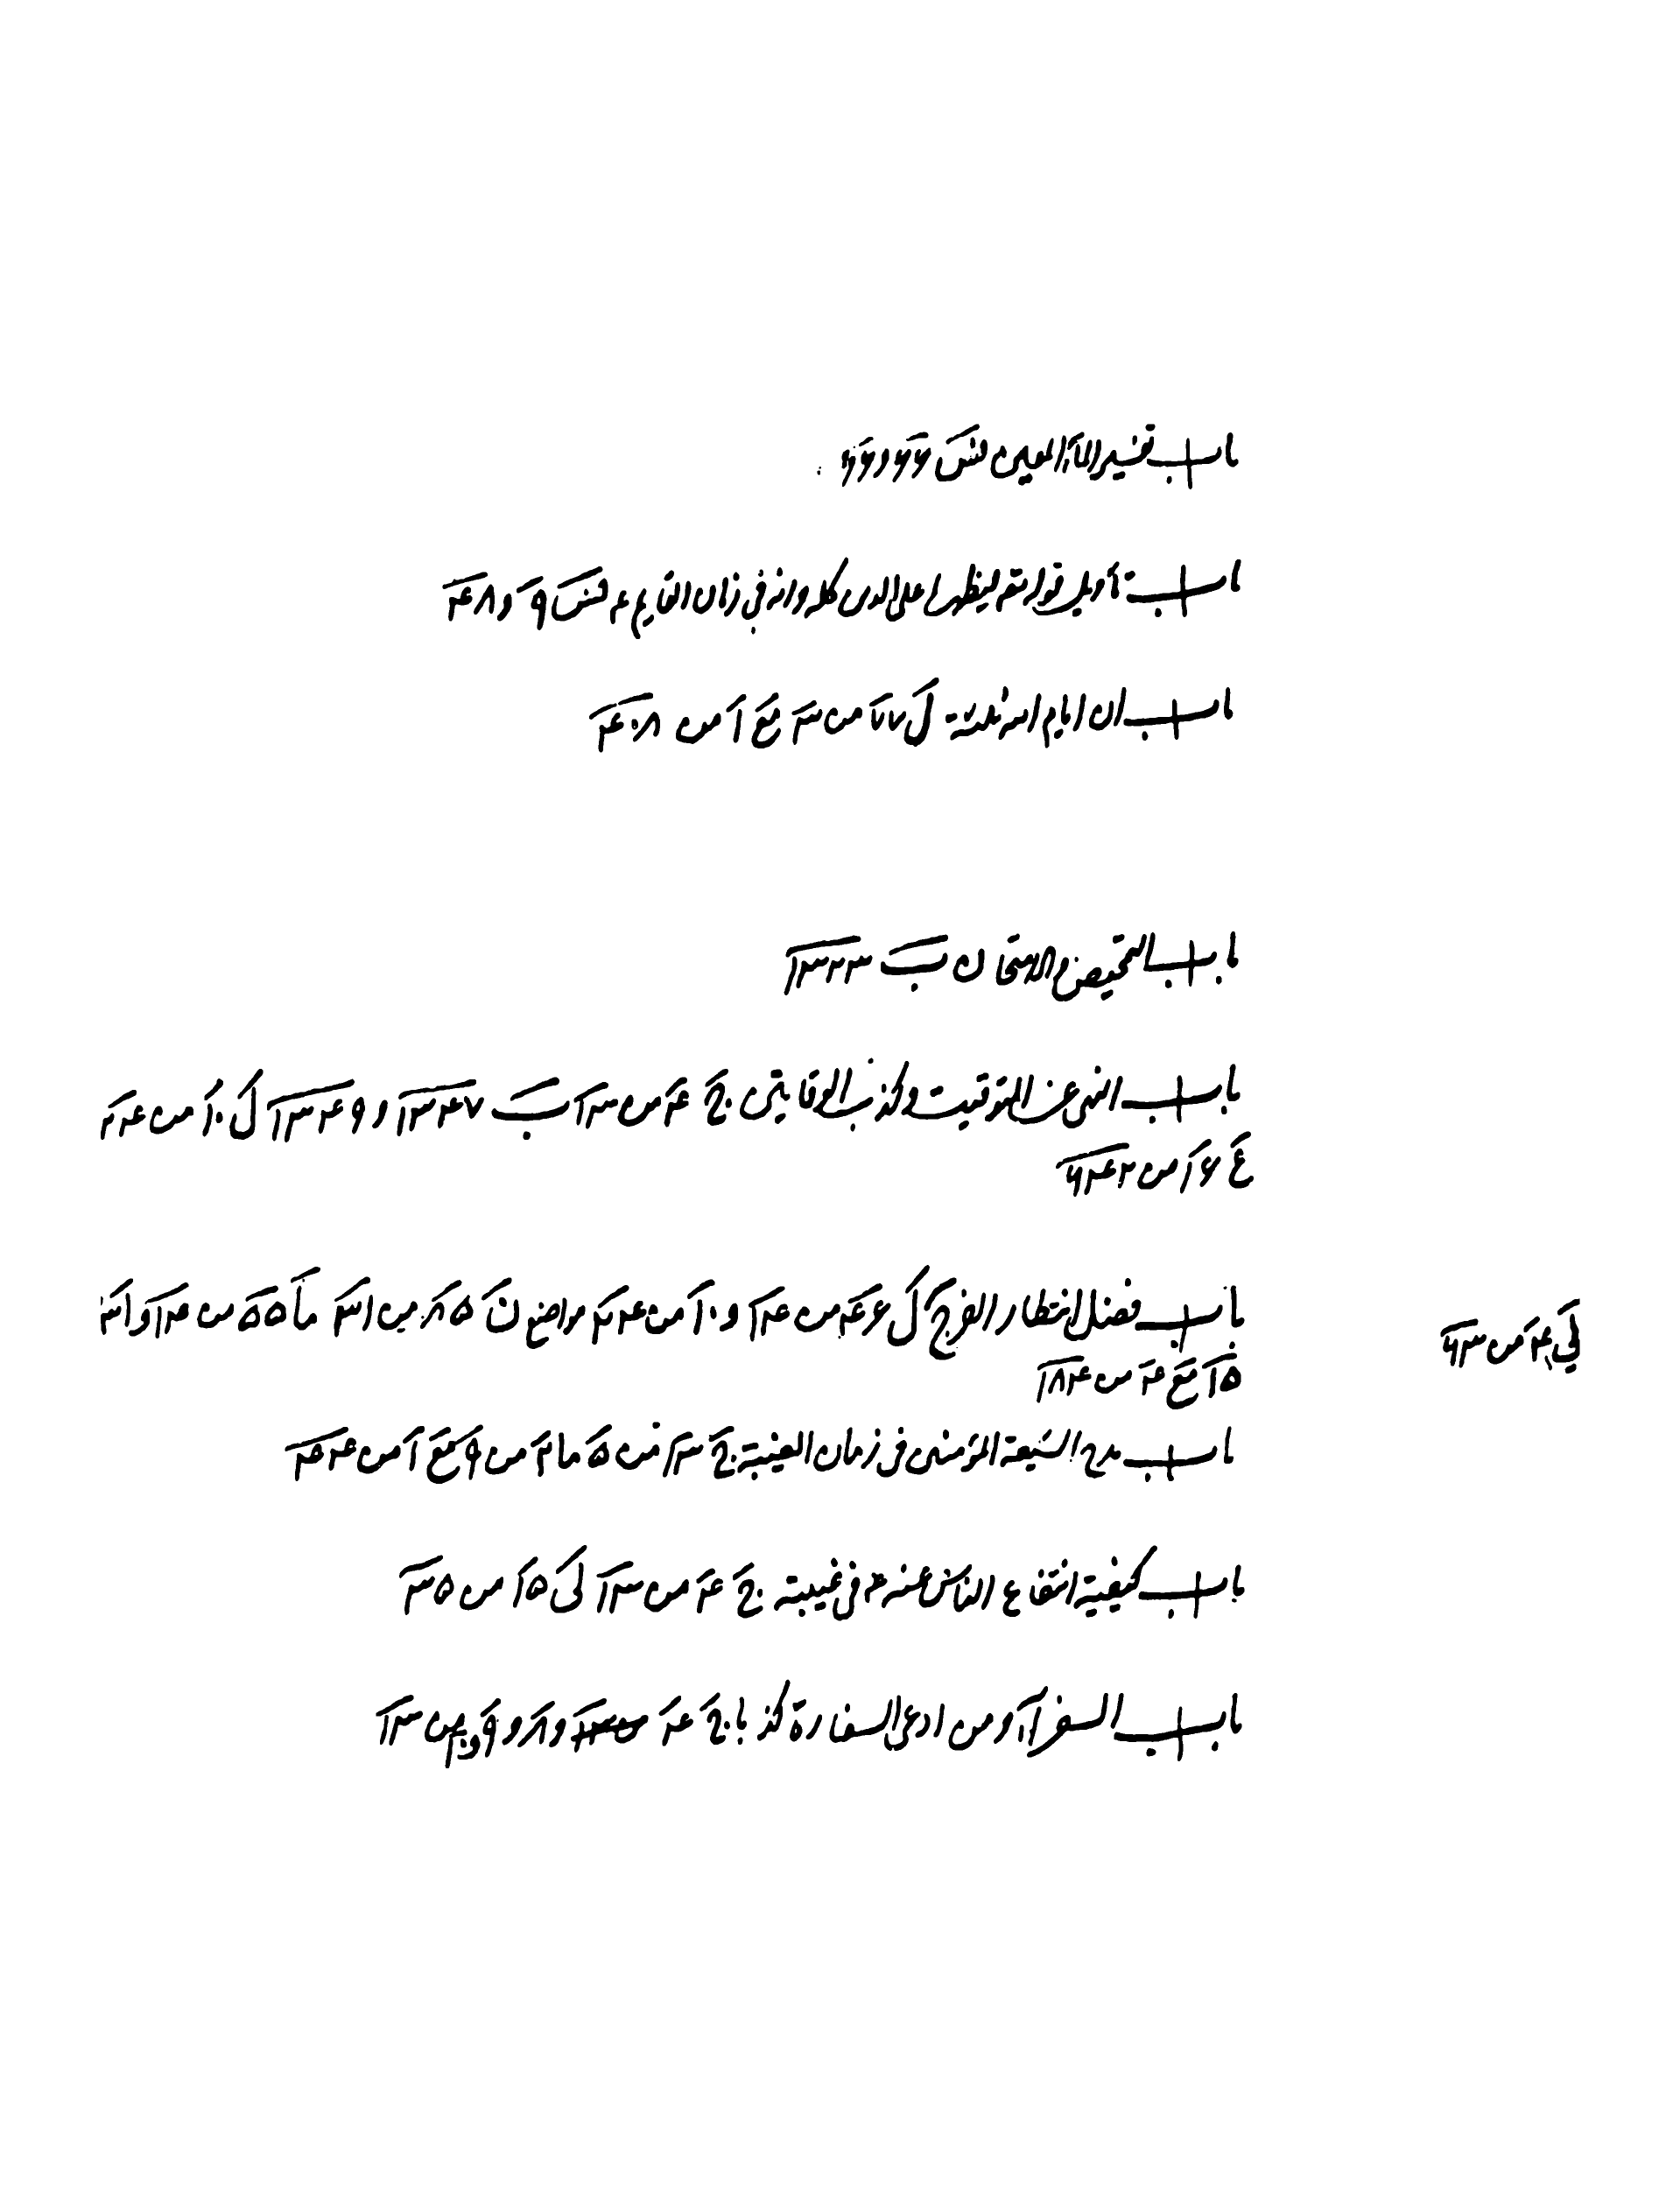 باب تفسير الماء المعين فس ٦٦ و ٦٦
باب تأويل قوله تعه ليظهره على الدين كله وانه في زمان القايم ع فس ٩ و ٤٨
باب ان ايام الله ثلثة ل ٧٧ من ٣ مع ١ من ٤٠٨
باب التمحيص والامتحان ب ١٣٢٣
باب النهي عن التوقيت وكذب الوقاتين ج ٤ من ١٣ ب ١٣٤٧ و ١٣٤٩ ل ١٠ من ٢٤
ع ١٦ من ٦٤٢
باب فضل انتظار الفرج ل من ١٤ و ١٠ من مواضع ن ٥ من ما ٥٥ من ١٣
لي ٤ من ٦٣
١٥ مع ٤ من ١٨٤
باب مدح الشيعة المؤمنين في زمان الغيبة ج ٣ من ٥ ما ٢ من ٩ مع ١ من
باب كيفية انتفاع الناس عنه ع في غيبته ج ٤ من ١٣ لى ١٥ من ٣٥
باب السفراء ومن ادعى السفارة كذبا ج ٤ و ٨ و ٩ من ١٣